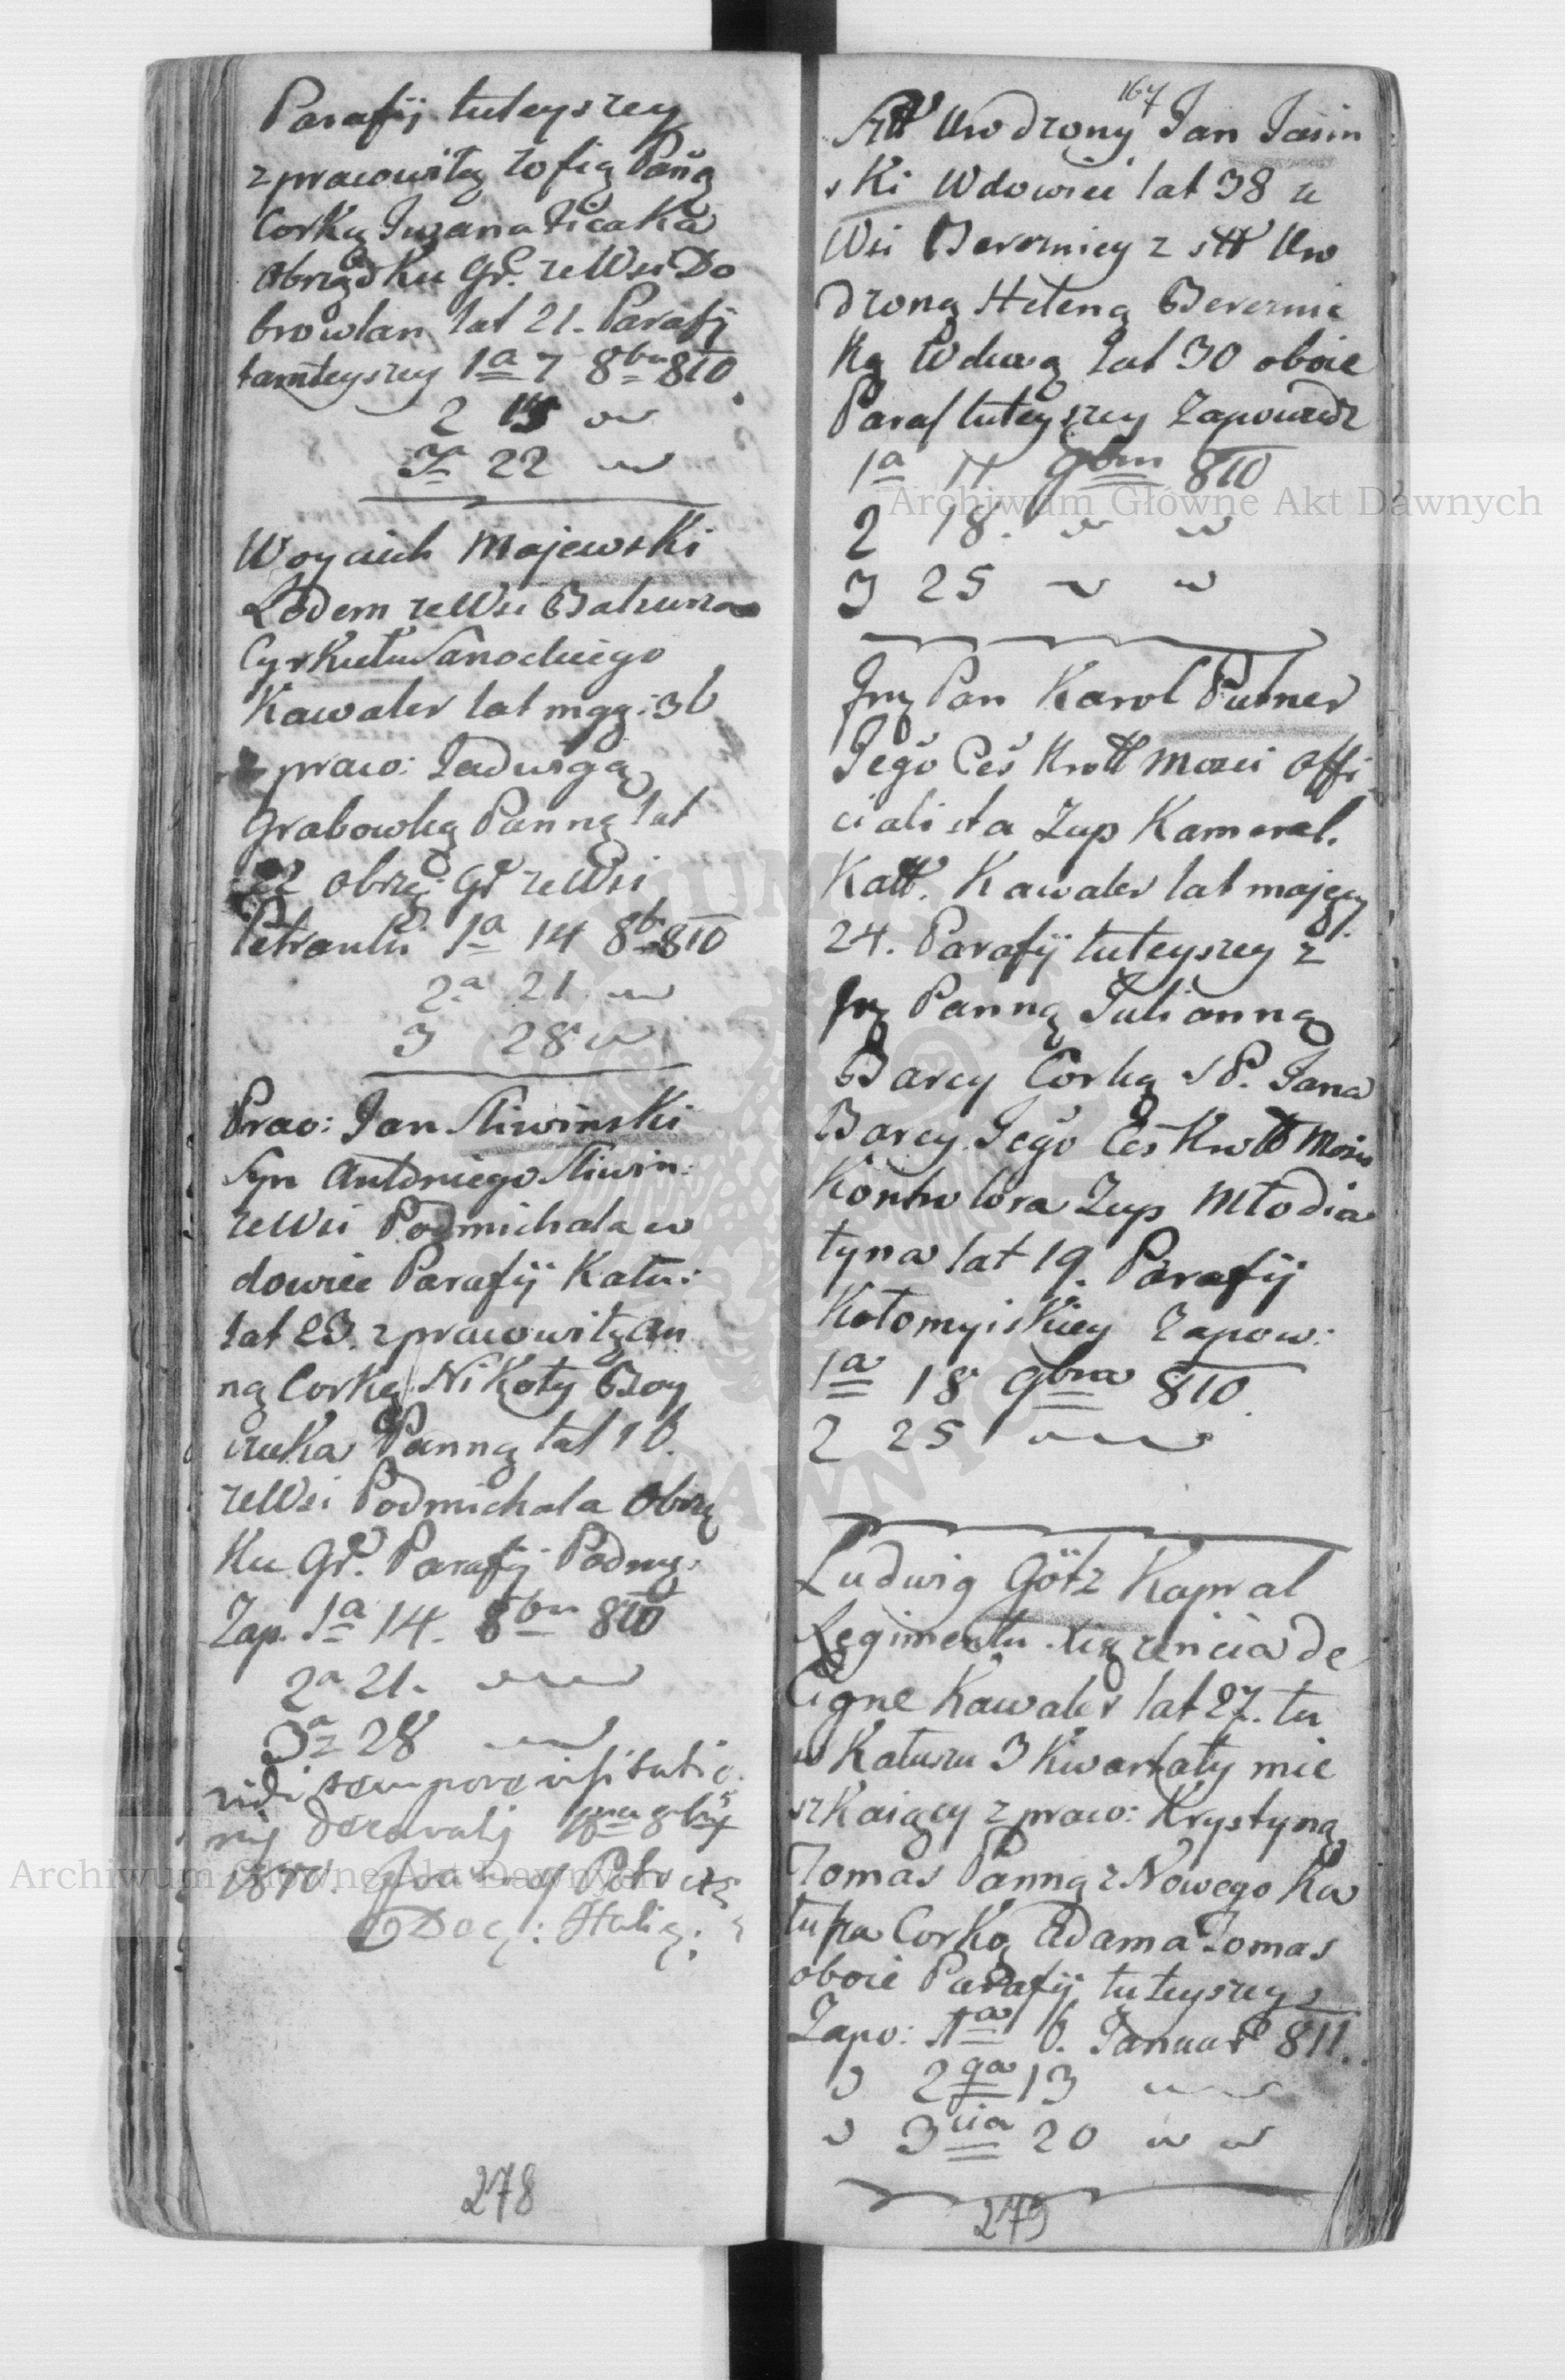 Parafij tuteyszey
z pracowitą Zofią Pañą
Corką Iwana Ficaka
Obrządku Gr. ze Wsi Do
browlan lat 21. Parafij
tamteyszey 1a 7 8bra 810
2 15
3a 22
Woyciech Majewski
Rodem ze Wsi
Cyrkułu Sanockiego
Kawaler lat mgą: 36
z praco: Jadwigą
Grabowką Panną lat
22 obrzą: Gr ze Wsi
Petranki 1a 14 8b 810
2a 21
3 28
Prac: Jan Sliwinski
Syn Antoniego Sliwin:
ze Wsi Podmichala w
dowiec Parafij Katu:
lat 23. z pracowitą An
ną Corką Nikoły Boy
czuka Panną lat 16.
ze Wsi Podmichala Obrzą
Ku Gr. Parafij Podmy:
Zap. 1a 14. 8bra 810
2a 21.
3a 28
vidi tempore visitatio
nis Decanalis
1810.
Dec: Halic:
167
Stt Urodzony Jan Jasin
ski Wdowiec lat 38 z
Wsi Bereznicy z stt Uro
dzoną Heleną Bereznic
ką Wdową lat 30 oboie
Paraf tuteyszey Zapowiedz
1a 11 9bra 810
2 18.
3 25
Jmą Pan Karol Putner
Jego Ces Krott Mosci Offi
cialista Zup Kameral.
Katt. Kawaler lat mający
24. Parafij tuteyszey z
Jmą Panną Julianną
Barcy Corką S P. Jana
Barcy Jego Ces Krott Mosci
Kontrolora Zup Młodia
tyna lat 19. Parafij
Kołomyiskiey Zapow:
1a 18 9bra 810
2 25
Ludwig Götz Kapral
Regimentu Xiązencia de
Ligne Kawaler lat 27. tu
w Katuszu 3 Kwartały mie
szkaiący z praco: Krystyną
Tomas Panną z Nowego Ka
łusza Corką Adama Tomas
oboie Parafij tuteyszey
Zapo: 1a 6. Januar 811.
2ga 13
3cia 20
278
279
Archiwum Główne Akt Dawnych
Archiwum Główne Akt Dawnych